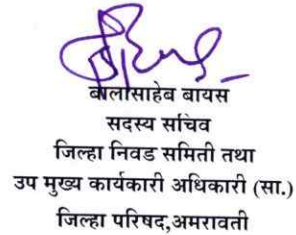 बालासाहेब बायस
सदस्य सचिव
जिल्हा निवड समिती तथा
उप मुख्य कार्यकारी अधिकारी (सा.)
जिल्हा परिषद,अमरावती